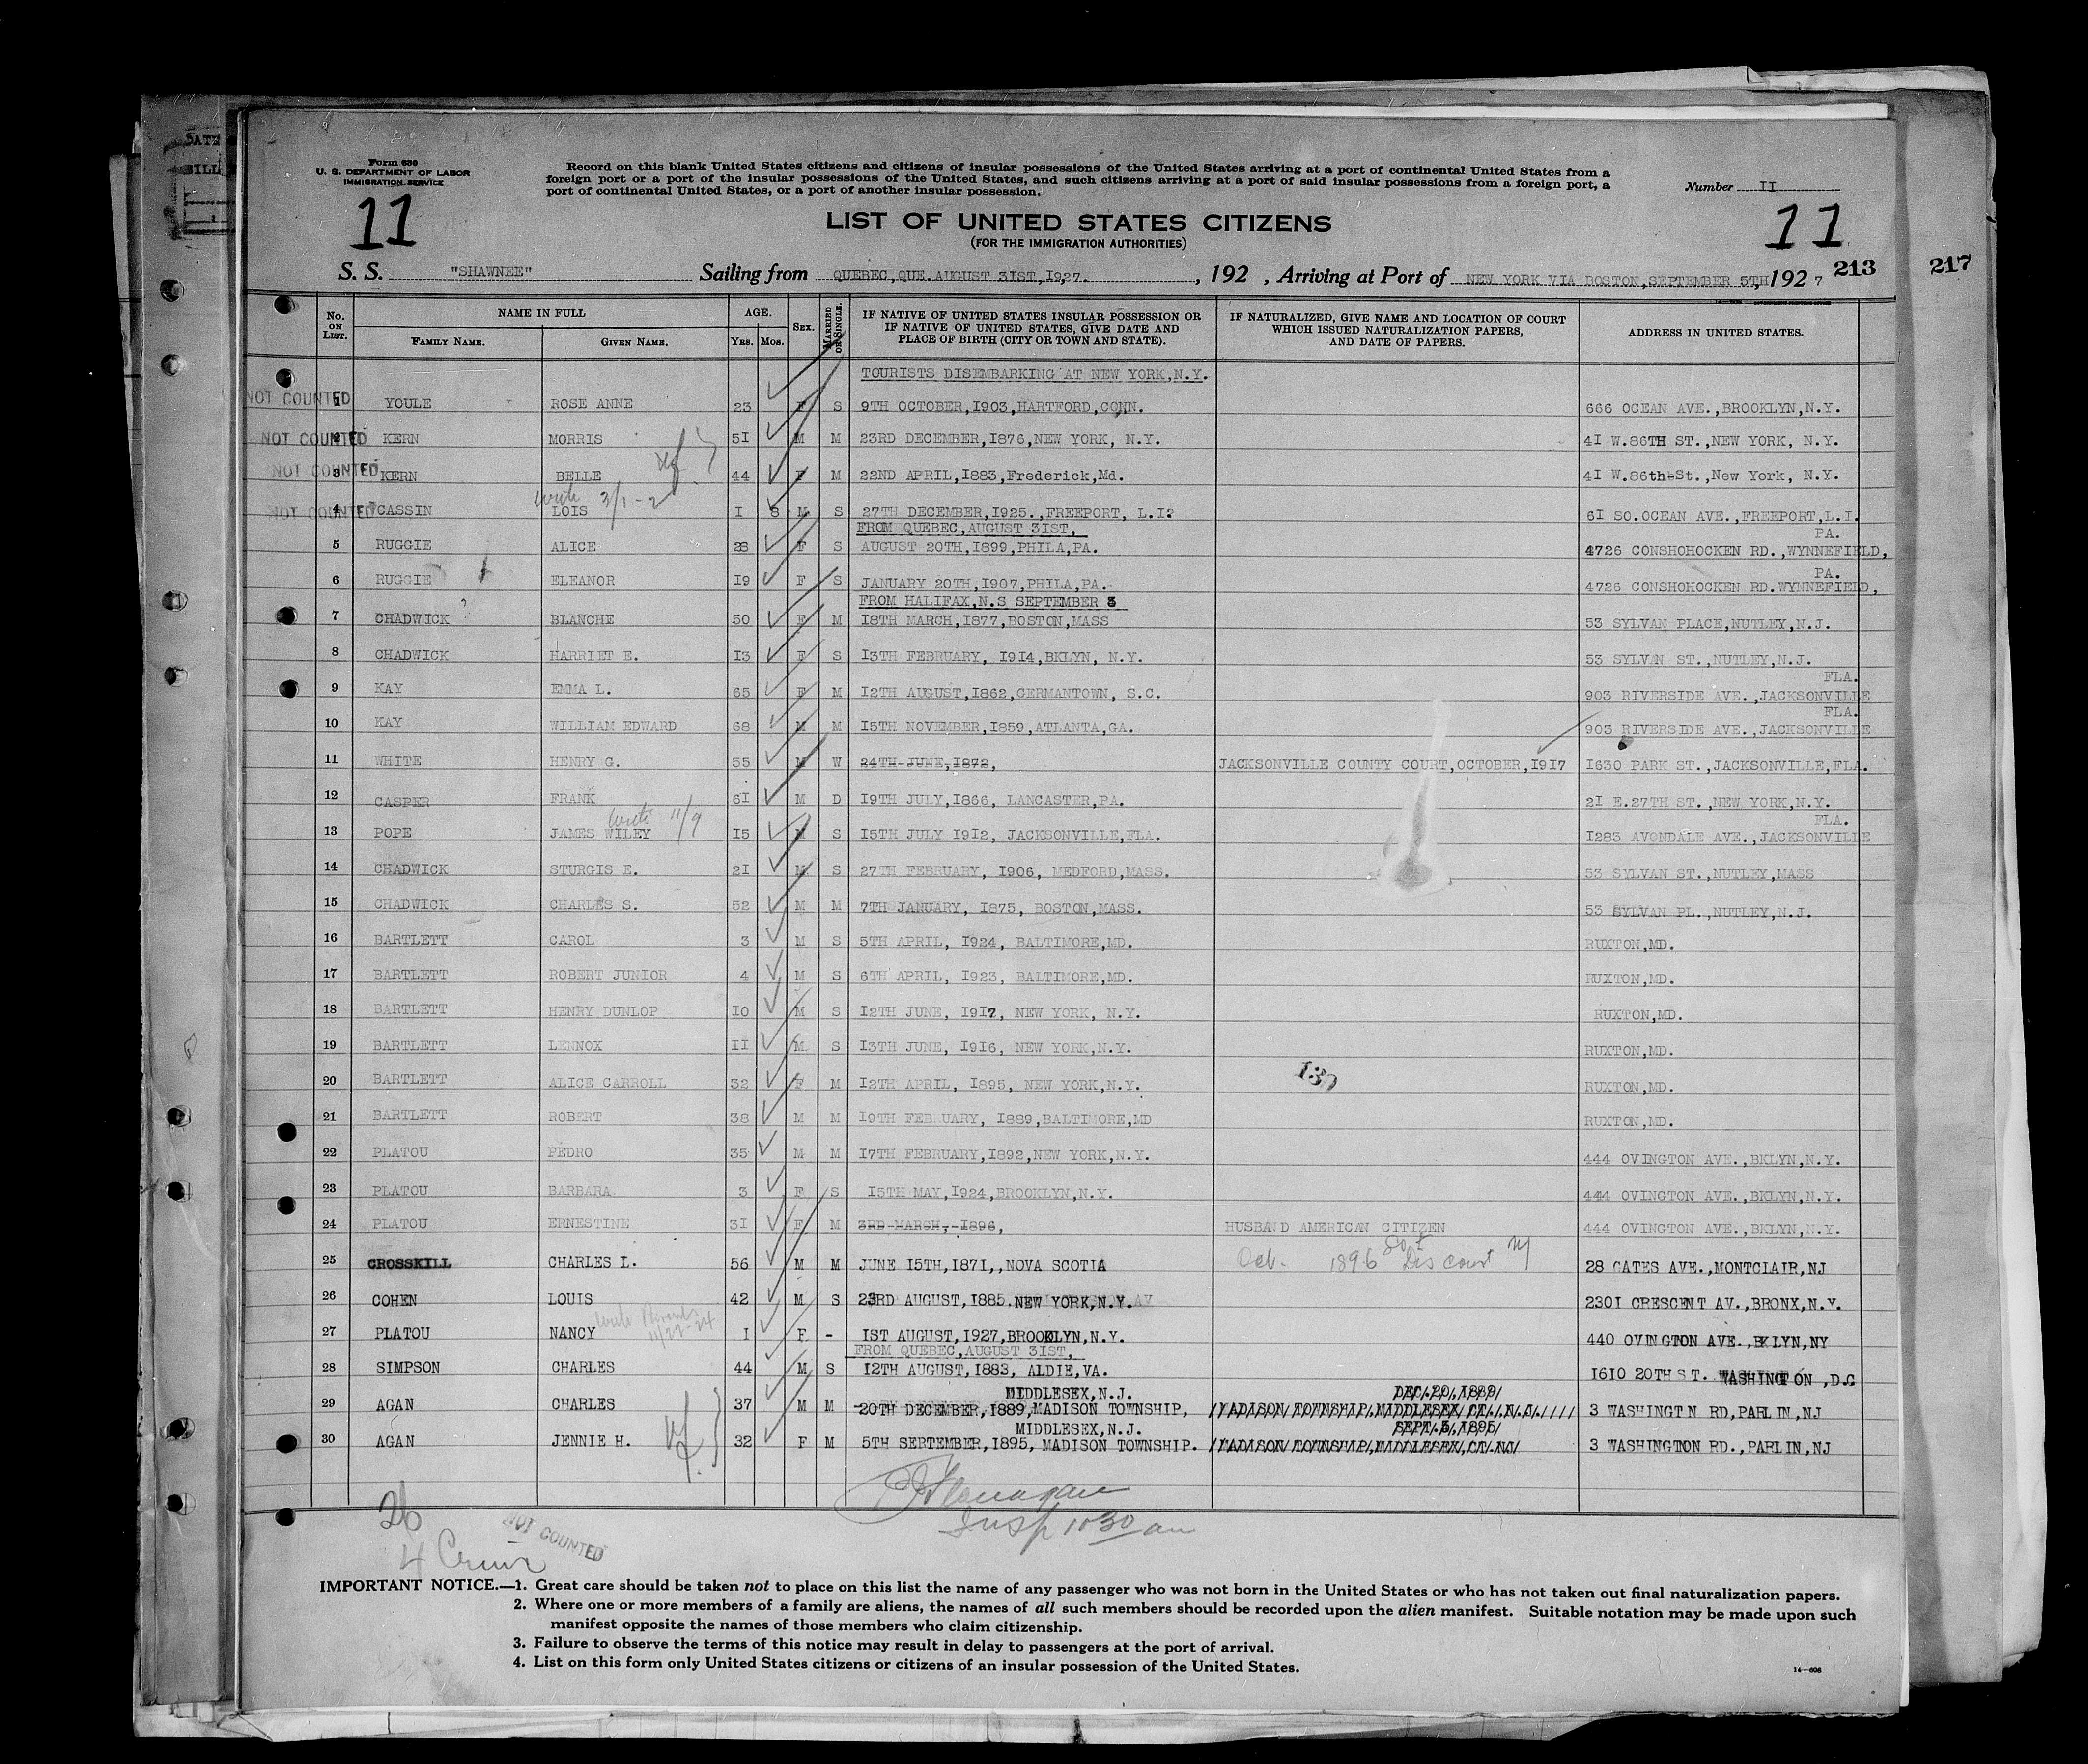 DATE
BILL
Form 630
U. S. DEPARTMENT OF LABOR
IMMIGRATION SERVICE
Record on this blank United States citizens and citizens of insular possessions of the United States arriving at a port of continental United States from a
foreign port or a port of the insular possessions of the United States, and such citizens arriving at a port of said insular possessions from a foreign port, a
port of continental United States, or a port of another insular possession.
Number II
11
11
LIST OF UNITED STATES CITIZENS
(FOR THE IMMIGRATION AUTHORITIES)
S. S. "SHAWNEE" Sailing from QUEBEC,QUE.AUGUST 3IST,I927. , 192 , Arriving at Port of NEW YORK VIA BOSTON,SEPTEMBER 5TH, 192 7 213 217
No. ON LIST. NAME IN FULL AGE. SEX. MARRIED OR SINGLE. IF NATIVE OF UNITED STATES INSULAR POSSESSION OR IF NATIVE OF UNITED STATES, GIVE DATE AND PLACE OF BIRTH (CITY OR TOWN AND STATE). IF NATURALIZED, GIVE NAME AND LOCATION OF COURT WHICH ISSUED NATURALIZATION PAPERS, AND DATE OF PAPERS. ADDRESS IN UNITED STATES.
FAMILY NAME. GIVEN NAME. YRS. MOS.
TOURISTS DISEMBARKING AT NEW YORK,N.Y.
NOT COUNTED 1 YOULE ROSE ANNE 23 F S 9TH OCTOBER,I903,HARTFORD,CONN. 666 OCEAN AVE.,BROOKLYN,N.Y.
NOT COUNTED 2 KERN MORRIS 5I M M 23RD DECEMBER,I876,NEW YORK, N.Y. 4I W.86TH ST.,NEW YORK, N.Y.
NOT COUNTED 3 KERN BELLE 44 F M 22ND APRIL,I883,Frederick,Md. 4I W.86th-St.,New York, N.Y.
3/1-2
NOT COUNTED 4 CASSIN LOIS I 8 M S 27TH DECEMBER,I925.,FREEPORT, L.I? 6I SO.OCEAN AVE.,FREEPORT,L.I.
FROM QUEBEC,AUGUST 3IST,
PA.
5 RUGGIE ALICE 28 F S AUGUST 20TH,I899,PHILA,PA. 4726 CONSHOHOCKEN RD.,WYNNEFIELD,
PA.
6 RUGGIE ELEANOR I9 F S JANUARY 20TH,I907,PHILA,PA. 4726 CONSHOHOCKEN RD.WYNNEFIELD,
FROM HALIFAX,N.S SEPTEMBER 3
7 CHADWICK ? BLANCHE 50 F M I8TH MARCH,I877,BOSTON,MASS 53 SYLVAN PLACE,NUTLEY,N.J.
8 CHADWICK HARRIET E. I3 F S I3TH FEBRUARY, I9I4,BKLYN, N.Y. 53 SYLVAN ST.,NUTLEY,N.J.
FLA.
9 KAY EMMA L. 65 F M I2TH AUGUST,I862,GERMANTOWN, S.C. 903 RIVERSIDE AVE.,JACKSONVILLE
FLA.
10 KAY WILLIAM EDWARD 68 M M I5TH NOVEMBER,I859,ATLANTA,GA. 903 RIVERSIDE AVE.,JACKSONVILLE
11 WHITE HENRY G. 55 M W 24TH-JUNE,I872, JACKSONVILLE COUNTY COURT,OCTOBER,I9I7 I630 PARK ST.,JACKSONVILLE,FLA.
12 CASPER FRANK 6I M D I9TH JULY,I866, LANCASTER,PA. 2I E.27TH ST.,NEW YORK,N.Y.
11/9
FLA.
13 POPE JAMES WILEY I5 M S I5TH JULY I9I2, JACKSONVILLE,FLA. I283 AVONDALE AVE.,JACKSONVILLE
14 CHADWICK STURGIS E. 2I M S 27TH FEBRUARY, I906, MEDFORD,MASS. 53 SYLVAN ST.,NUTLEY,MASS
15 CHADWICK CHARLES S. 52 M M 7TH JANUARY, I875, BOSTON,MASS. 53 SYLVAN PL.,NUTLEY,N.J.
16 BARTLETT CAROL 3 M S 5TH APRIL, I924, BALTIMORE,MD. RUXTON,MD.
17 BARTLETT ROBERT JUNIOR 4 M S 6TH APRIL, I923, BALTIMORE,MD. RUXTON,MD.
18 BARTLETT HENRY DUNLOP I0 M S I2TH JUNE, I9I7, NEW YORK, N.Y. RUXTON,MD.
19 BARTLETT LENNOX II M S I3TH JUNE, I9I6, NEW YORK,N.Y. RUXTON,MD.
20 BARTLETT ALICE CARROLL 32 F M I2TH APRIL, I895, NEW YORK,N.Y. RUXTON,MD.
21 BARTLETT ROBERT 38 M M I9TH FEBRUARY, I889,BALTIMORE,MD RUXTON,MD.
22 PLATOU PEDRO 35 M M I7TH FEBRUARY,I892,NEW YORK,N.Y. 444 OVINGTON AVE.,BKLYN,N.Y.
23 PLATOU BARBARA 3 F S I5TH MAY,I924,BROOKLYN,N.Y. 444 OVINGTON AVE.,BKLYN,N.Y.
24 PLATOU ERNESTINE 3I F M 3RD-MARCH,-I896, HUSBAND AMERICAN CITIZEN 444 OVINGTON AVE.,BKLYN,N.Y.
25 CROSSKILL CHARLES L. 56 M M JUNE I5TH,I87I,,NOVA SCOTIA Oct. 1896 Dis court NJ 28 GATES AVE.,MONTCLAIR,NJ
26 COHEN LOUIS 42 M S 23RD AUGUST,I885,NEW YORK,N.Y. 230I CRESCENT AV.,BRONX,N.Y.
27 PLATOU NANCY I F - IST AUGUST,I927,BROOKLYN,N.Y. 440 OVINGTON AVE.,BKLYN,NY
FROM QUEBEC,AUGUST 3IST,
28 SIMPSON CHARLES 44 M S I2TH AUGUST,I883, ALDIE,VA. I6I0 20TH ST. WASHINGTON ,D.C
MIDDLESEX,N.J. DEC.20,I889
29 AGAN CHARLES 37 M M 20TH DECEMBER,I889,MADISON TOWNSHIP, MADISON TOWNSHIP,MIDDLESEX CT. N.J. 3 WASHINGT N RD,PARLIN,NJ
MIDDLESEX,N.J. SEPT.5,I895
30 AGAN JENNIE H. 32 F M 5TH SEPTEMBER,I895, MADISON TOWNSHIP. MADISON TOWNSHIP,MIDDLESEX,CT.NJ 3 WASHINGTON RD.,PARLIN,NJ
Flanagan
Insp 10 30 am
26
NOT COUNTED
4
IMPORTANT NOTICE.—1. Great care should be taken not to place on this list the name of any passenger who was not born in the United States or who has not taken out final naturalization papers.
2. Where one or more members of a family are aliens, the names of all such members should be recorded upon the alien manifest. Suitable notation may be made upon such
manifest opposite the names of those members who claim citizenship.
3. Failure to observe the terms of this notice may result in delay to passengers at the port of arrival.
4. List on this form only United States citizens or citizens of an insular possession of the United States.
14—606